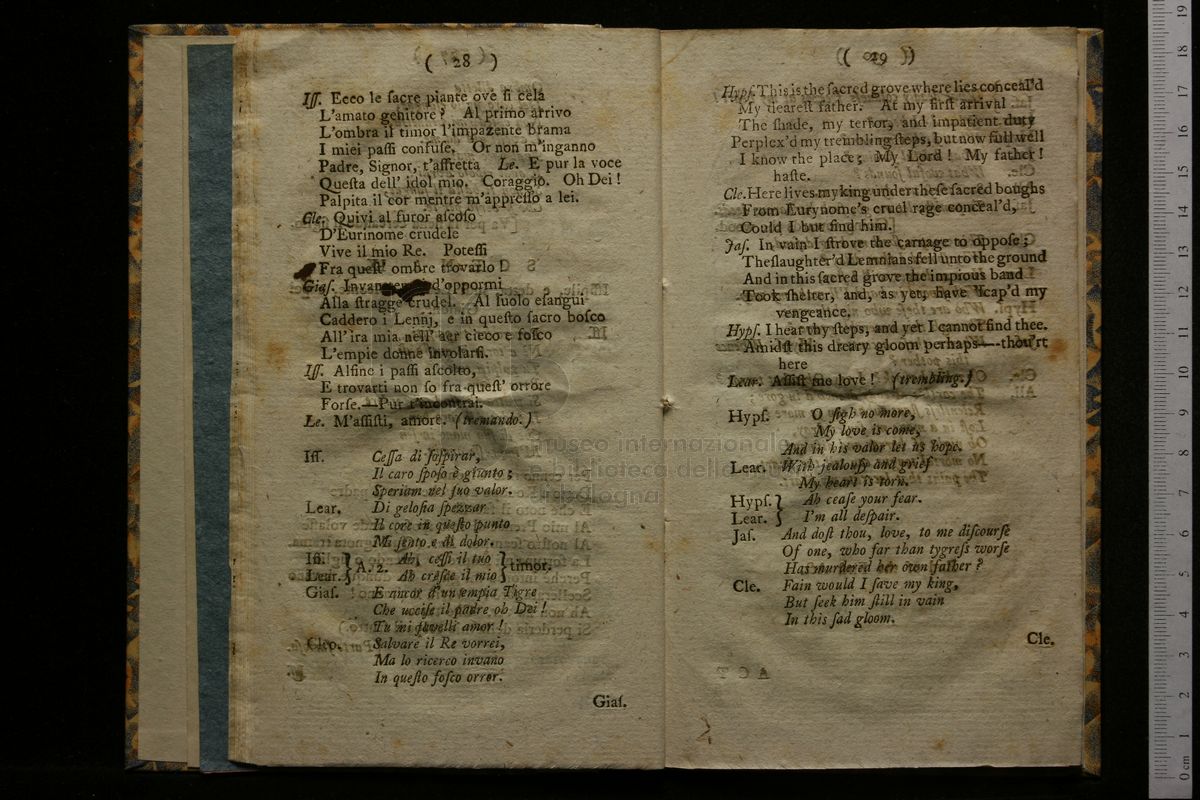 ( 28 )
Iſſ. Ecco le ſacre piante ove ſi cela
L'amato genitore? Al primo arrivo
L'ombra il timor l'impazente brama
I miei paſſi confuſe. Or non m'inganno
Padre, Signor, t'affretta Le. E pur la voce
Queſta dell' idol mio. Coraggio. Oh Dei!
Palpita il cor mentre m'appreſſo a lei.
Cle. Quivi al furor aſcoſo
D'Eurinome crudele
Vive il mio Re. Poteſſi
Fra queſt' ombre trovarlo!
Giaſ. d'oppormi
Alla ſtragge crudel. Al ſuolo eſangui
Caddero i Lennj, e in queſto ſacro boſco
All' ira mia nell' aer cieco e foſco
L'empie donne involarſi.
Iſſ. Alfine i paſſi aſcolto,
E trovarti non ſo fra queſt' orrore
Forſe.—Pur t'incontrai.
Le. M'aſſiſti, amore. (tremando.)
Iſſ. Ceſſa di ſoſpirar,
Il caro ſpoſo è giunto;
Speriam nel ſuo valor.
Lear. Di geloſia ſpezzar
Il core in queſto punto
Mi ſento e di dolor.
Iſſ. } A. 2. Ah, ceſſi il tuo } timor,
Lear. } Ah creſce il mio
Giaſ. E ancor d'un'empia Tigre
Che ucciſe il padre oh Dei!
Tu mi favelli amor!
Cleo. Salvare il Re vorrei,
Ma lo ricerco invano
In queſto foſco orror.
Giaſ.
( 29 )
Hypſ. This is the ſacred grove where lies conceal'd
My deareſt father. At my firſt arrival
The ſhade, my terror, and impatient duty
Perplex'd my trembling ſteps, but now full well
I know the place; My Lord! My father!
haſte.
Cle. Here lives my king under theſe ſacred boughs
From Eurynome's cruel rage conceal'd,
Could I but find him.
Jaſ. In vain I ſtrove the carnage to oppoſe;
The ſlaughter'd Lemnians fell unto the ground
And in this ſacred grove the impious band
Took ſhelter, and, as yet, have 'ſcap'd my
vengeance.
Hypſ. I hear thy ſteps, and yet I cannot find thee.
Amidſt this dreary gloom perhaps—thou'rt
here
Lear. Aſſiſt me love! (trembling.)
Hypſ. O ſigh no more,
My love is come,
And in his valor let us hope.
Lear. With jealouſy and grief
My heart is torn.
Hypſ. } Ah ceaſe your fear.
Lear. } I'm all deſpair.
Jaſ. And doſt thou, love, to me diſcourſe
Of one, who far than tygreſs worſe
Has murdered her own father?
Cle. Fain would I ſave my king,
But ſeek him ſtill in vain
In this ſad gloom.
Cle.
museo internazionale
e biblioteca della
bologna
0 cm 1 2 3 4 5 6 7 8 9 10 11 12 13 14 15 16 17 18 19